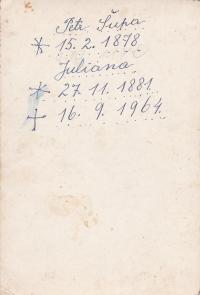 Petr Šupa
* 15. 2. 1878
Juliána
* 27. 11. 1881
+ 16. 9. 1964